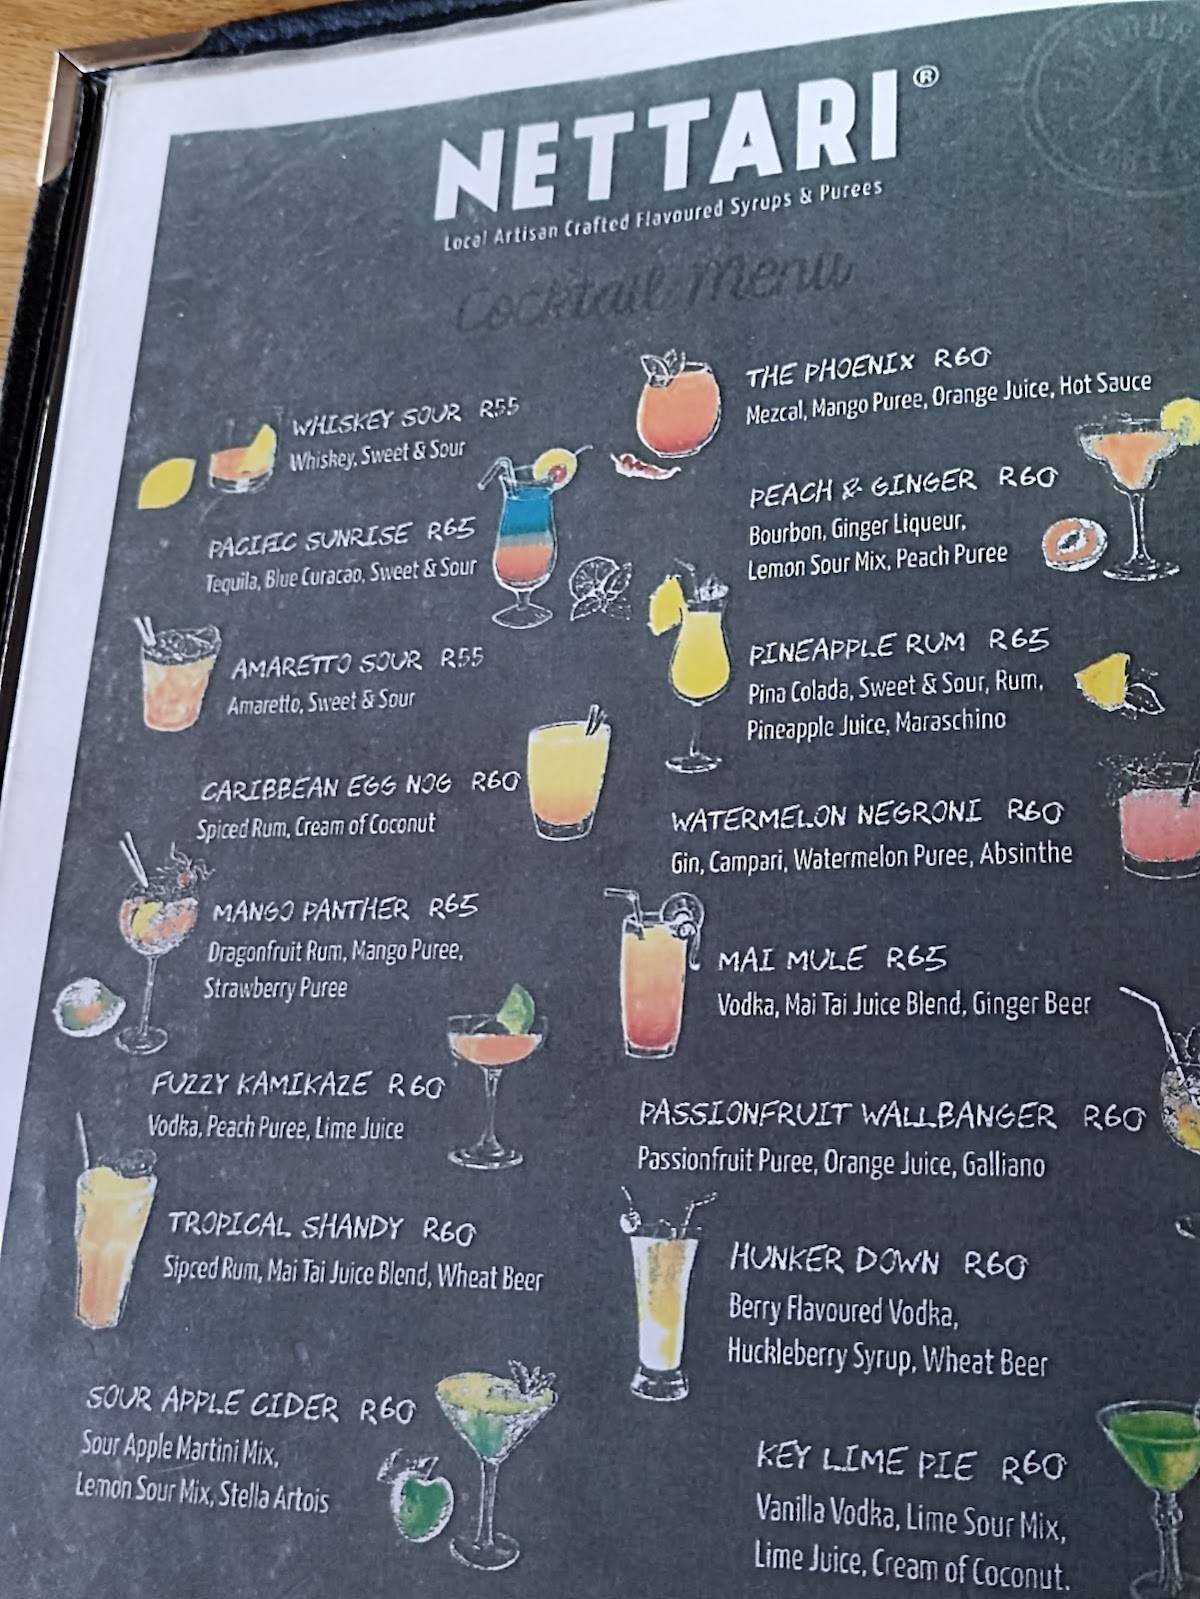 NETTARI®
Local Artisan Crafted Flavoured Syrups & Purees
Cocktail Menu
WHISKEY SOUR R55
Whiskey, Sweet & Sour
PACIFIC SUNRISE R65
Tequila, Blue Curacao, Sweet & Sour
AMARETTO SOUR R55
Amaretto, Sweet & Sour
CARIBBEAN EGG NOG R60
Spiced Rum, Cream of Coconut
MANGO PANTHER R65
Dragonfruit Rum, Mango Puree,
Strawberry Puree
FUZZY KAMIKAZE R60
Vodka, Peach Puree, Lime Juice
TROPICAL SHANDY R60
Sipced Rum, Mai Tai Juice Blend, Wheat Beer
SOUR APPLE CIDER R60
Sour Apple Martini Mix,
Lemon Sour Mix, Stella Artois
THE PHOENIX R60
Mezcal, Mango Puree, Orange Juice, Hot Sauce
PEACH & GINGER R60
Bourbon, Ginger Liqueur,
Lemon Sour Mix, Peach Puree
PINEAPPLE RUM R65
Pina Colada, Sweet & Sour, Rum,
Pineapple Juice, Maraschino
WATERMELON NEGRONI R60
Gin, Campari, Watermelon Puree, Absinthe
MAI MULE R65
Vodka, Mai Tai Juice Blend, Ginger Beer
PASSIONFRUIT WALLBANGER R60
Passionfruit Puree, Orange Juice, Galliano
HUNKER DOWN R60
Berry Flavoured Vodka,
Huckleberry Syrup, Wheat Beer
KEY LIME PIE R60
Vanilla Vodka, Lime Sour Mix,
Lime Juice, Cream of Coconut.